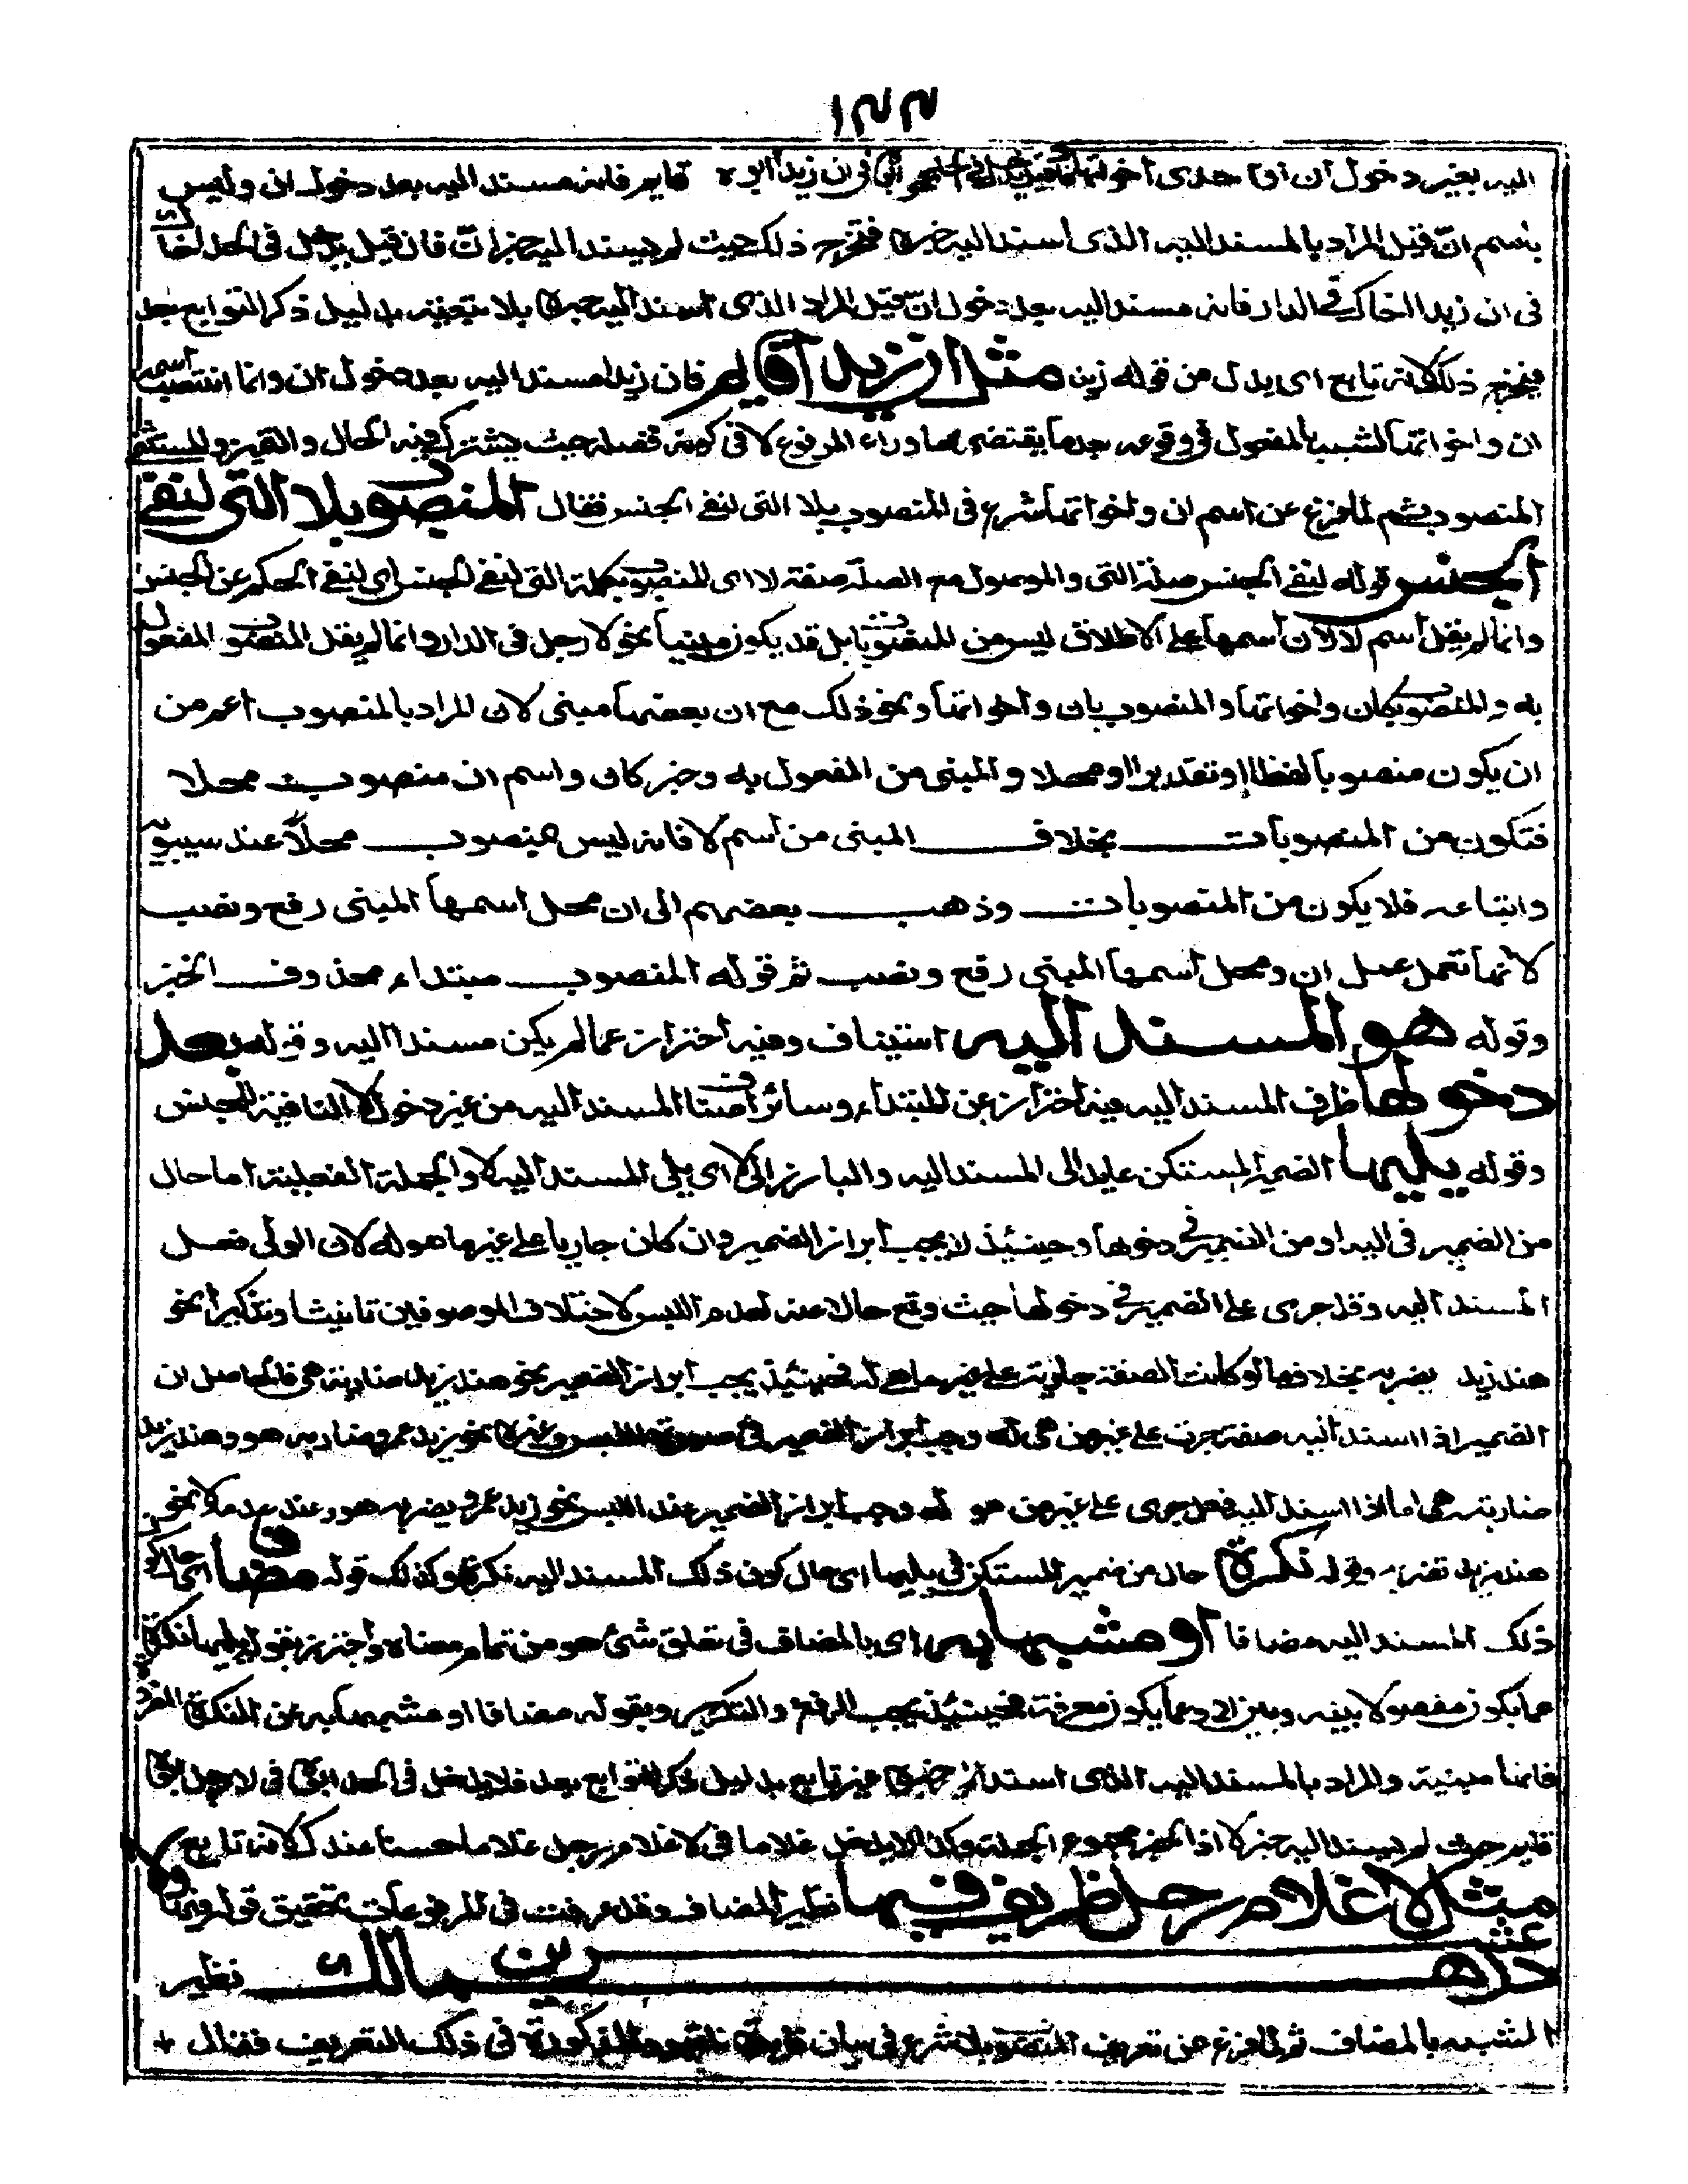 ١٣٣
اليه بغير دخول ان او احدى اخواتها في ان زيدا ابوه قايم فانه مسند اليه بعد دخول ان وليس
باسم ان قيل المراد بالمسند اليه الذى اسند اليه خبرها فيخرج ذلك حيث لم يسند اليه خبر ان فان قيل يدخل فى الحد اخاك
فى ان زيدا اخاك فى الدار فانه مسند اليه بعد دخول ان قيل المراد الذى اسند اليه خبرها بلا تبعيته بدليل ذكر التوابع بعد
فيخرج ذلك لانه تابع اى بدل من قوله زيد مثل ان زيدا قايم فان زيدا مسند اليه بعد دخول ان وانما انتصب اسم
ان واخواتها لشبهه بالمفعول فى وقوعه بعد ما يقتضى ما وراء المرفوع لا فى كونه فضلة حيث يشترك فيه الحال والتميز والمستثنى
المنصوب ثم لما فرغ عن اسم ان واخواتها شرع فى المنصوب بلا التى لنفى الجنس فقال المنصوب بلا التى لنفى
الجنس قوله لنفى الجنس صلة التى والموصول مع الصلة صفة لا اى المنصوب بكلمة التى لنفى الجنس اى لنفى الحكم عن الجنس
وانما لم يقل اسم لا لان اسمها على الاطلاق ليس من المنصوبات بل قد يكون مبنيا نحو لا رجل فى الدار وانما لم يقل المنصوب المفعول
به والمنصوب بكان واخواتها والمنصوب بان واخواتها ونحو ذلك مع ان بعضها مبنى لان المراد بالمنصوب اعم من
ان يكون منصوبا لفظا او تقديرا او محلا والمبنى من المفعول به وخبر كان واسم ان منصوب محلا
فتكون من المنصوبات بخلاف المبنى من اسم لا فانه ليس بمنصوب محلا عند سيبويه
واتباعه فلا يكون من المنصوبات وذهب بعضهم الى ان محل اسمها المبنى رفع ونصب
لانها تعمل عمل ان ومحل اسمها المبنى رفع ونصب ثم قوله المنصوب مبتداء محذوف الخبر
وقوله هو المسند اليه استيناف وفيه احتراز عما لم يكن مسندا اليه وقوله بعد
دخولها ظرف المسند اليه فيه احتراز عن المبتداء وسائر اصناف المسند اليه من غير دخول لا النافية للجنس
وقوله يليها الضمير المستكن عايد الى المسند اليه والبارز الى لا اى يلى المسند اليه لا والجملة الفعلية اما حال
من الضمير فى اليه او من الضمير فى دخولها وحينئذ لا يجب ابراز الضمير وان كان جاريا على غير ما هو له لان الولى فعل
المسند اليه وقد جرى على الضمير فى دخولها حيث وقع حالا منه لعدم اللبس لاختلاف الموصوفين تانيثا وتذكيرا نحو
هند زيد يضربه بخلاف ما لو كانت الصفة جارية على غير ما هى له فحينئذ يجب ابراز الضمير نحو هند زيد ضاربته هى فالحاصل ان
الضمير اذا اسند اليه صفة جرت على غير من هى له وجب ابراز الضمير فى صورة اللبس وغيرها نحو زيد عمرو ضاربه هو وهند زيد
ضاربته هى اما اذا اسند اليه فعل جرى على غير من هو له وجب ابراز الضمير عند اللبس نحو زيد عمرو يضربه هو وعند عدمه لا نحو
هند زيد تضربه وقوله نكرة حال من ضمير المستكن فى يليها اى حال كون ذلك المسند اليه نكرة وكذلك قوله مضافا اى حال كون
ذلك المسند اليه مضافا او مشبها به اى بالمضاف فى تعلق شئ هو من تمام معناه واحترز بقوله يليها نكرة
عما يكون مفصولا بينه وبين لا وعما يكون معرفة فحينئذ يجب الرفع والتكرير وبقوله مضافا او مشبها به عن النكرة المفردة
فانها مبنية والمراد بالمسند اليه الذى اسند اليه خبرها غير تابع بدليل ذكر التوابع بعد فلا يدخل فى الحد ابوه فى لا رجل ابوه
قايم حيث لم يسند اليه خبر لا اذ الخبر مجموع الجملة وكذا لا يدخل غلاما فى لا غلام رجل غلاما حسنا عندك لانه تابع
مثل لا غلام رجل ظريف فيها نظير المضاف وقد عرفت فى المرفوعات تحقيق قوله فيها ولا
عشرين درهما لك نظير
المشبه بالمضاف ثم لما فرغ عن تعريف المنصوب بلا شرع فى بيان المذكورة فى ذلك التعريف فقال